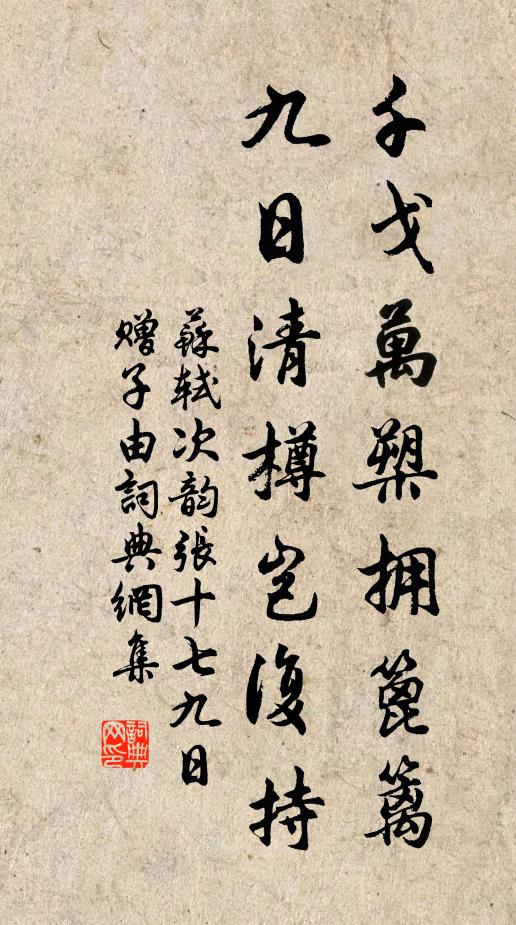 千戈萬槊擁篦篱
九日清樽豈復持
蘇軾次韵張十七九日
贈子由詞典網集
詞典
网印